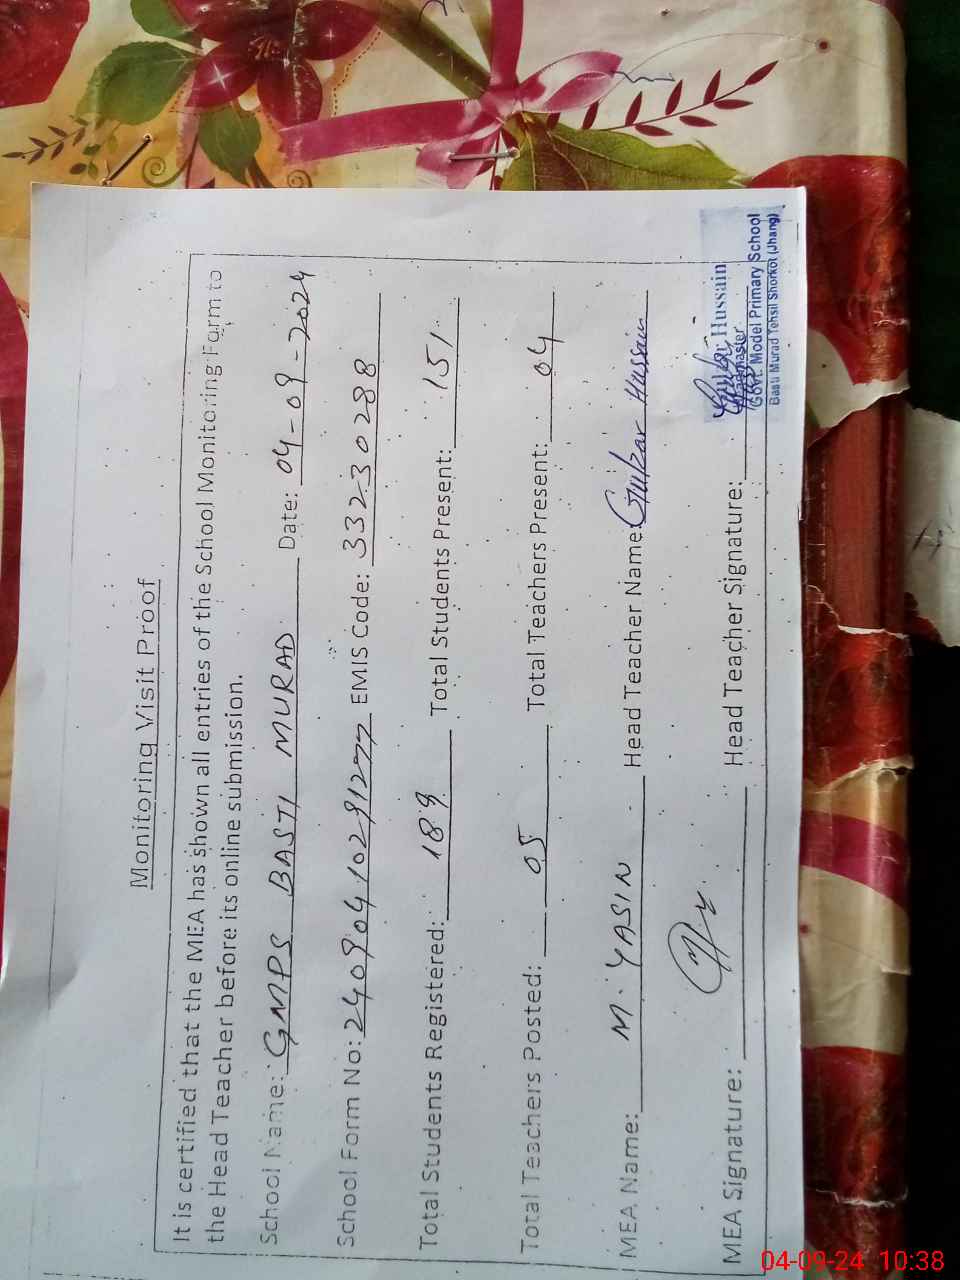 Monitoring Visit Proof
It is certified that the MEA has shown all entries of the School Monitoring Form to
the Head Teacher before its online submission.
School Name: GMPS BASTI MURAD Date: 04-09-2024
School Form No: 24090410291277 EMIS Code: 33230288
Total Students Registered: 189 Total Students Present: 151
Total Teachers Posted: 05 Total Teachers Present: 04
MEA Name: M. YASIN Head Teacher Name: Gulzar Hussain
MEA Signature: Head Teacher Signature:
Gulzar Hussain
Headmaster
Govt. Model Primary School
Basti Murad Tehsil Shorkot (Jhang)
04-09-24 10:38